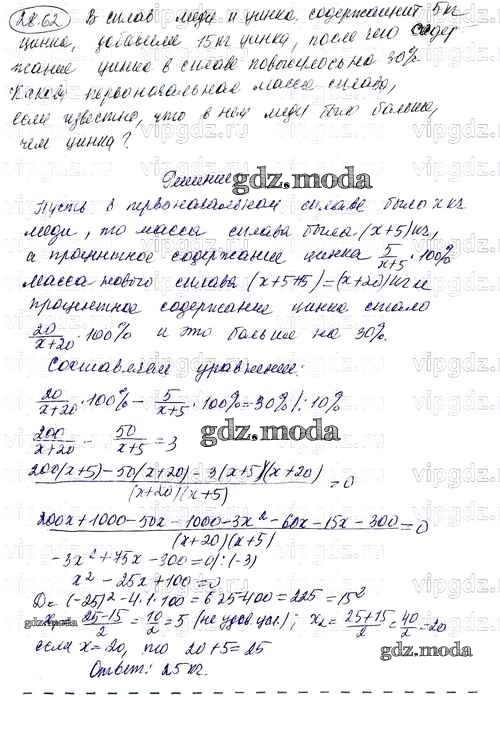 28.62 В сплав меди и цинка, содержащий 5 кг
цинка, добавили 15 кг цинка, после чего содер-
жание цинка в сплаве повысилось на 30%
Какова первоначальная масса сплава,
если известно, что в нем меди было больше,
чем цинка?
Решение
gdz.moda
Пусть в первоначальном сплаве было x кг
меди, то масса сплава была (x+5) кг,
а процентное содержание цинка 5/(x+5) · 100%
Масса нового сплава (x+5+15) = (x+20) кг и
процентное содержание цинка стало
20/(x+20) · 100% и это больше на 30%.
Составляем уравнение:
20/(x+20) · 100% − 5/(x+5) · 100% = 30% /: 10%
200/(x+20) − 50/(x+5) = 3
gdz.moda
(200(x+5) − 50(x+20) − 3(x+5)(x+20))/((x+20)(x+5)) = 0
(200x + 1000 − 50x − 1000 − 3x² − 60x − 15x − 300)/((x+20)(x+5)) = 0
−3x² + 75x − 300 = 0 /: (−3)
x² − 25x + 100 = 0
D = (−25)² − 4·1·100 = 625 − 400 = 225 = 15²
x₁ = (25−15)/2 = 10/2 = 5 (не удов. усл.); x₂ = (25+15)/2 = 40/2 = 20
если x = 20, то 20 + 5 = 25
gdz.moda
Ответ: 25 кг.